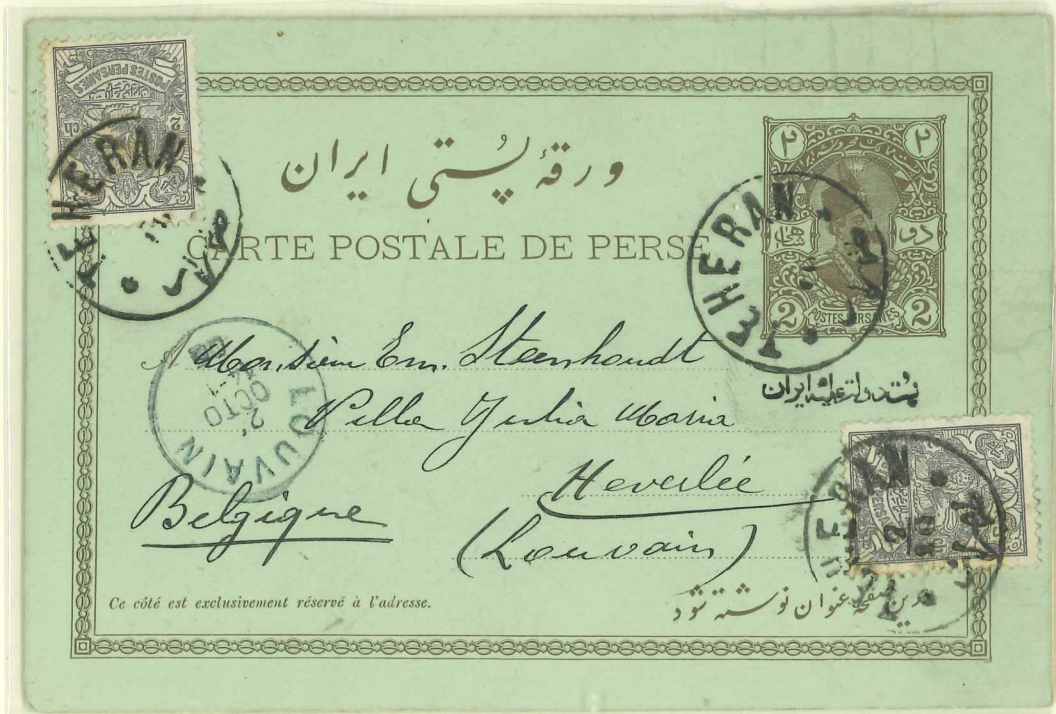 POSTES PERSANES
2 ch
TEHERAN
ورقهٔ پستی ایران
CARTE POSTALE DE PERSE
۲ ۲
دو شاهی
2 POSTES PERSANES 2
TEHERAN
پست دولت علیه ایران
A Monsieur Em. Steenhoudt
Villa Julia Maria
Heverlée
(Louvain)
Belgique
LOUVAIN
OCTO
TEHERAN
Ce côté est exclusivement réservé à l'adresse.
درین صفحه عنوان نوشته شود